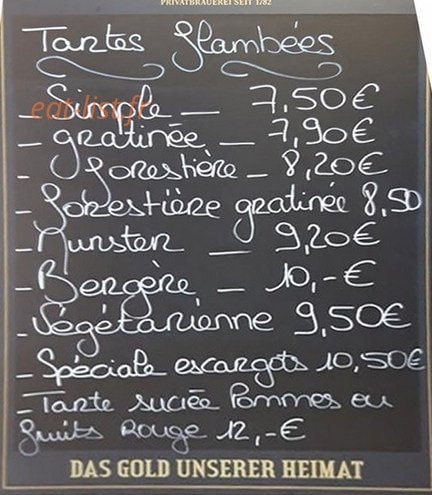 PRIVATBRAUEREI SEIT 1782
Tartes flambées
eat-list.fr
- Simple - 7,50€
- gratinée - 7,90€
- forestière - 8,20€
- forestière gratinée 8,50
- Munster - 9,20€
- Bergère - 10,-€
- Végétarienne 9,50€
- Spéciale escargots 10,50€
- Tarte sucrée Pommes ou
fruits Rouge 12,-€
DAS GOLD UNSERER HEIMAT